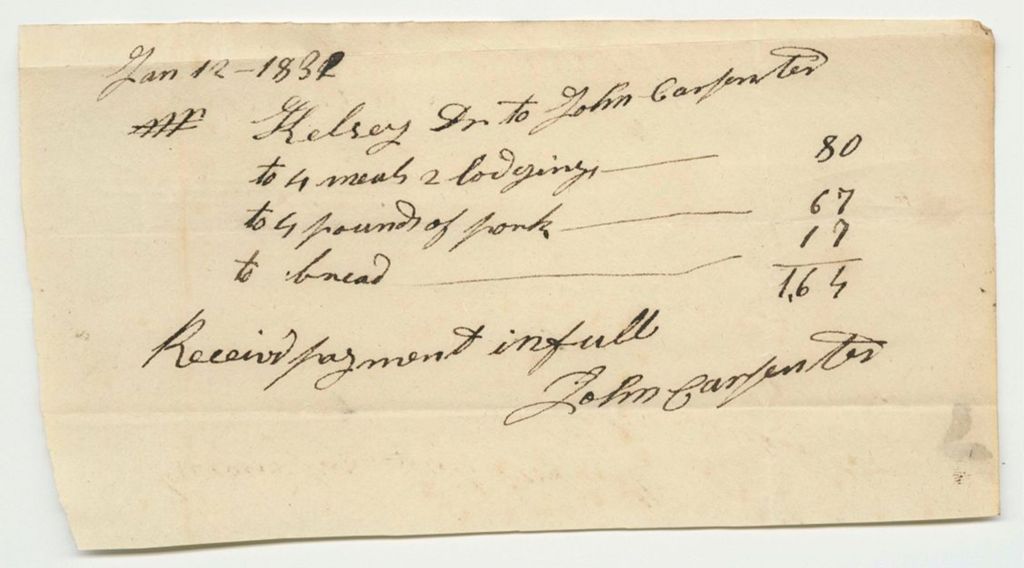 Jan 12 - 1832
Mr Kelsey Dr to John Carpenter
to 4 meals 2 lodgings 80
to 4 pounds of pork 67
to bread 17
1,64
Receivd payment in full
John Carpenter